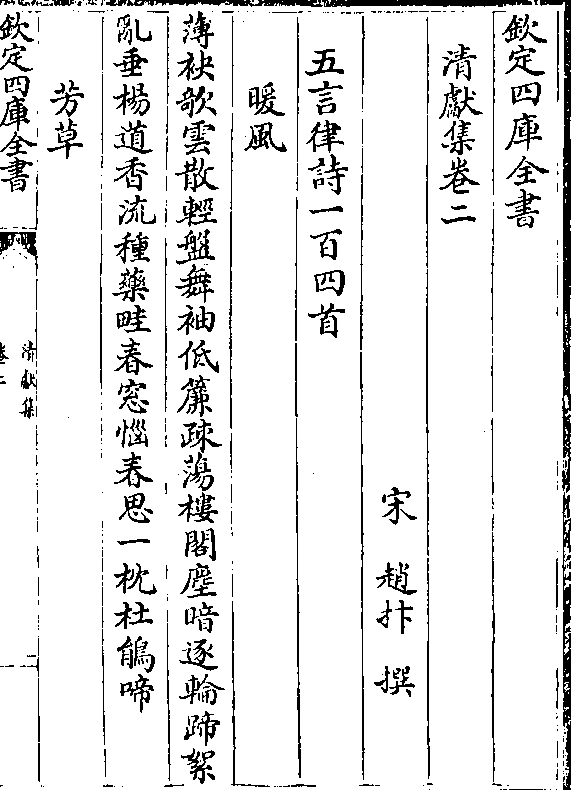 欽定四庫全書
清獻集卷二
宋 趙抃 撰
五言律詩一百四首
暖風
薄袂歌雲散輕盤舞袖低簾疎蕩樓閣塵暗逐輪蹄絮
亂垂楊道香流種藥畦春窓惱春思一枕杜鵑啼
芳草
欽定四庫全書
清獻集
卷二